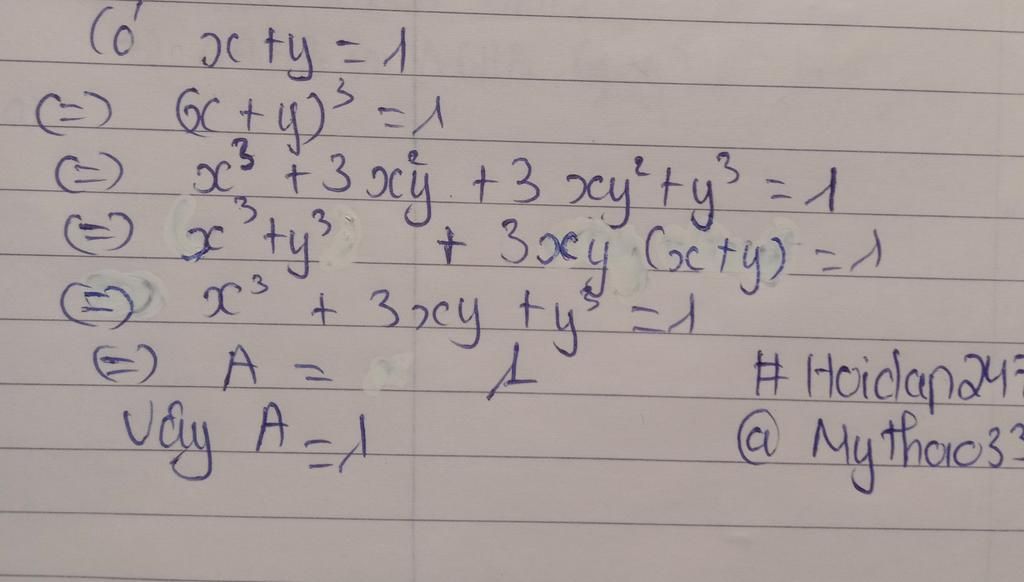 Có x + y = 1
(=) (x + y)³ = 1
(=) x³ + 3x²y + 3xy² + y³ = 1
(=) x³ + y³ + 3xy (x + y) = 1
(=) x³ + 3xy + y³ = 1
(=) A = 1
Vậy A = 1
# Hoidap247
@ Mythao33